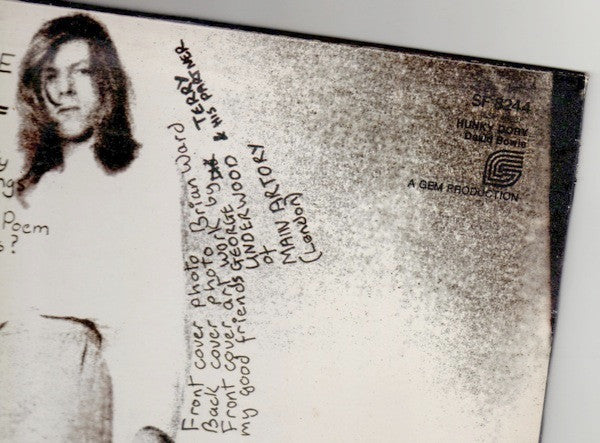 E
=
y
ngs
Poem
s?
Front cover photo Brian Ward
Back cover photo by
Front cover art work by TERRY
& HIS PARTNER
my good friends GEORGE
UNDERWOOD
of
MAIN ARTORY
(London)
SF 8244
HUNKY DORY
David Bowie
A GEM PRODUCTION